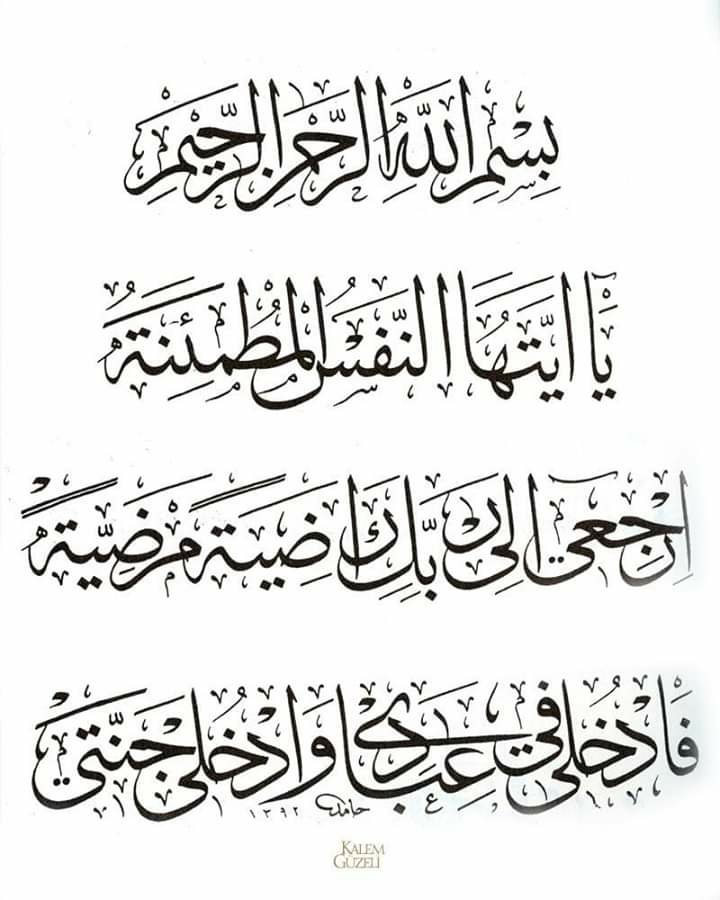 بِسْمِ اللّٰهِ الرَّحْمٰنِ الرَّحِيمِ
يَٓا اَيَّتُهَا النَّفْسُ الْمُطْمَئِنَّةُ
اِرْجِعِٓى اِلٰى رَبِّكِ رَاضِيَةً مَرْضِيَّةً
فَادْخُلِى فِى عِبَادِى وَادْخُلِى جَنَّتِى
حامد ١٣٩٢
KALEM
GÜZELİ